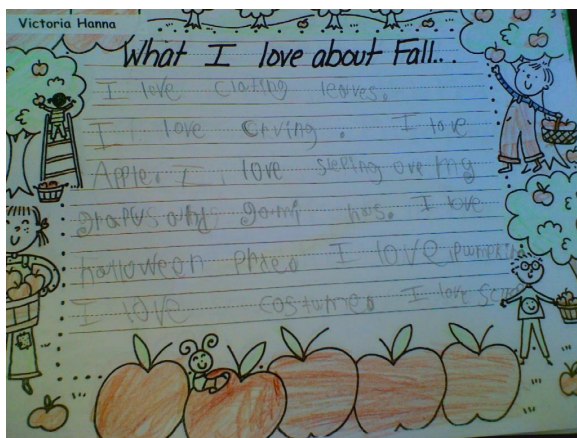 Victoria Hanna
What I love about Fall...
I love clating leaves.
I love crving. I love
Apple. I love sleping ove my
I love
halloween I love pumpkin
I love costume. I love